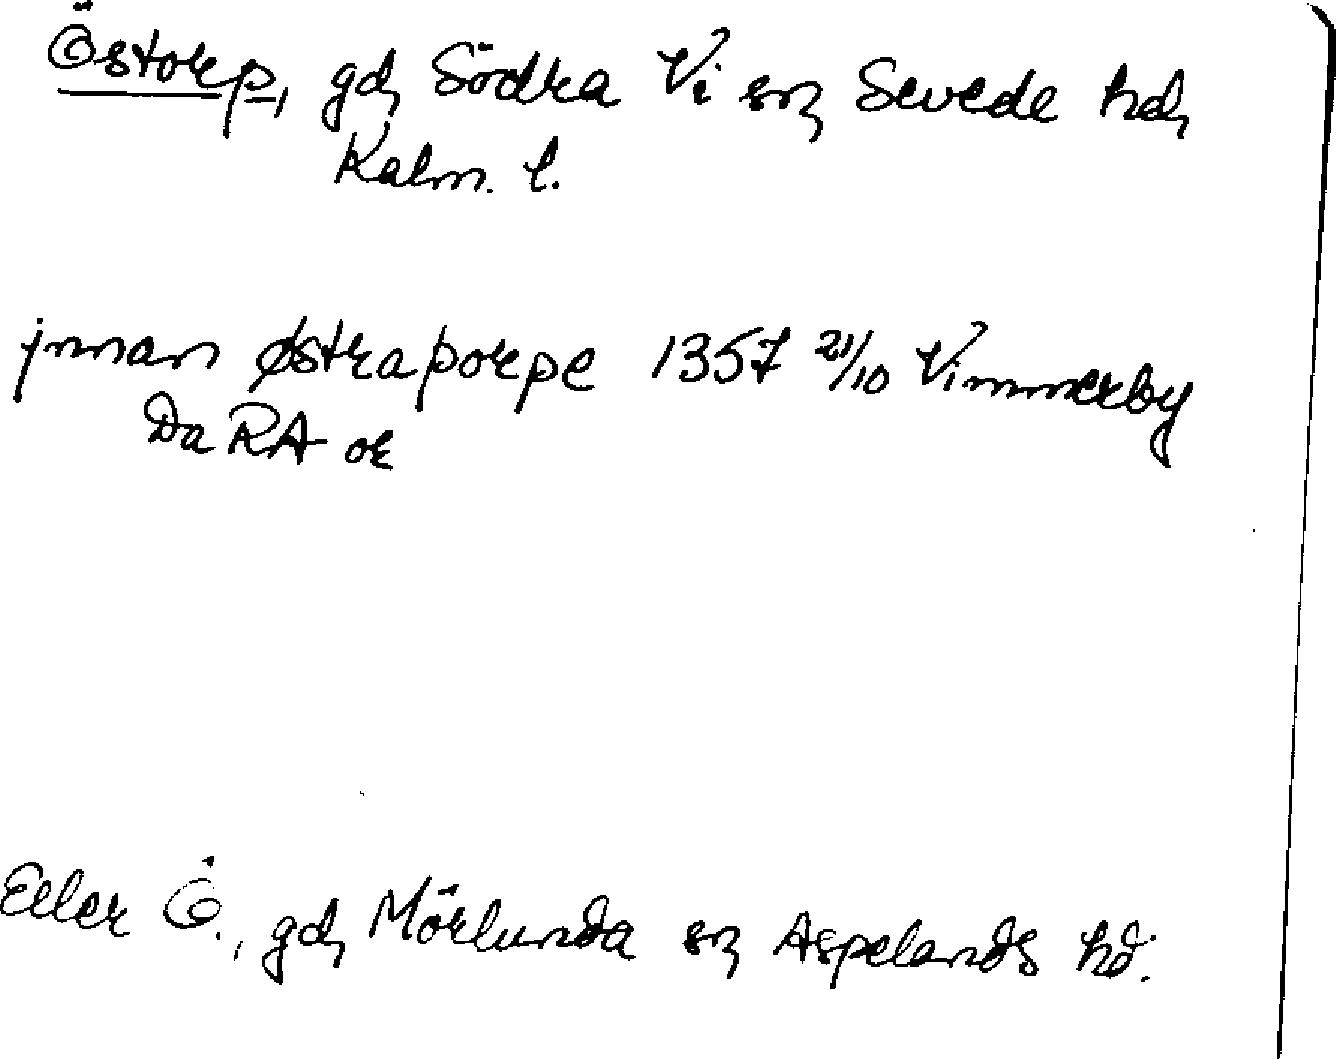 Östorp, gd, Södra Vi sn, Sevede hd,
Kalm. l.
jnnan østraþorpe 1357 21/10 Vimmerby
Da RA or
Eller Ö., gd, Mörlunda sn, Aspelands hd.